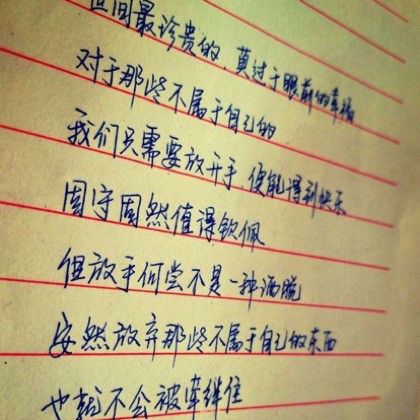 世间最珍贵的，莫过于眼前的幸福
对于那些不属于自己的
我们只需要放开手，便能得到快乐
固守固然值得钦佩
但放手何尝不是一种洒脱
安然放弃那些不属于自己的东西
也就不会被牵绊住